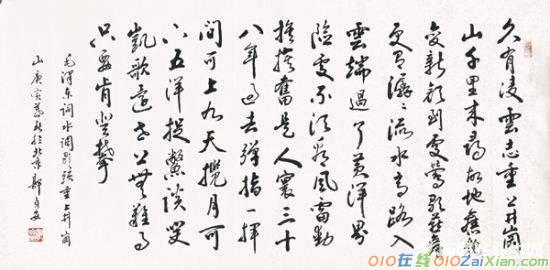 久有凌雲志重上井岡
山千里来尋故地舊貌
變新顔到處鶯歌燕舞
更有潺〻流水高路入
雲端過了黄洋界
險處不須看風雷動
旌旗奮是人寰三十
八年過去彈指一揮
間可上九天攬月可
下五洋捉鱉談笑
凱歌還世上無難事
只要肯登攀
毛澤東詞水調歌頭重上井岡
山庚寅於北京
010在线 010ZaiXian.com